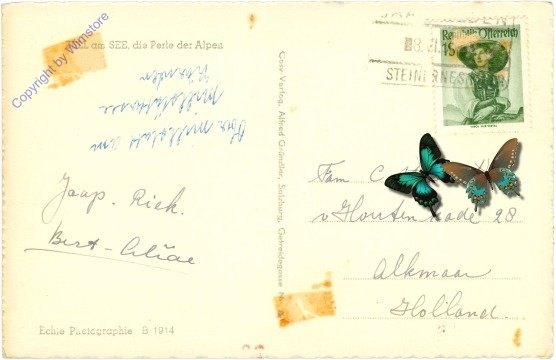 Copyright by Wimstore
am SEE, die Perle der Alpen
millstatt am
Millstättersee
Kärnten
Jaap. Riek.
Bert -
Echte Photographie B 1914
Cosy Verlag, Alfred Gründler, Salzburg, Getreidegasse
Republik Österreich
STEINERNES
Fam.
v Houtenkade 28
Alkmaar
Holland.